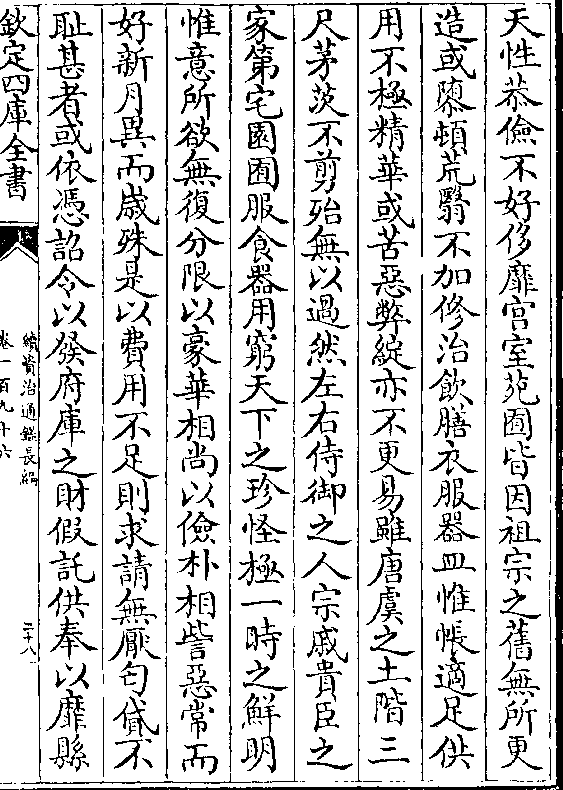 天性恭儉不好侈靡宫室苑囿皆因祖宗之舊無所更
造或隳頓荒翳不加修治飲膳衣服器皿惟帳適足供
用不極精華或苦惡弊綻亦不更易雖唐虞之土階三
尺茅茨不剪殆無以過然左右侍御之人宗戚貴臣之
家第宅園囿服食器用窮天下之珍怪極一時之鮮明
惟意所欲無復分限以豪華相尚以儉朴相訾惡常而
好新月異而嵗殊是以費用不足則求請無厭匄貸不
耻甚者或依憑詔令以發府庫之財假託供奉以靡縣
欽定四庫全書
續資治通鑑長編
卷一百九十六
二十八